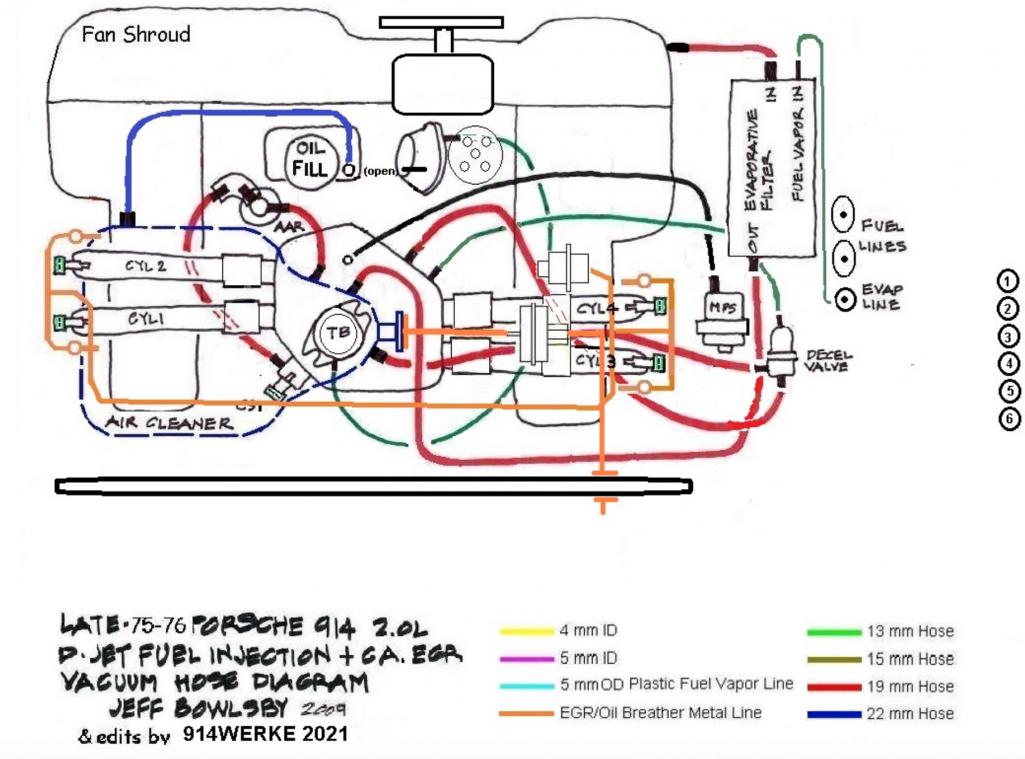 Fan Shroud
OIL
FILL
(open)
AAR
CYL 2
CYL1
TB
AIR CLEANER
CYL4
CYL3
MPS
IN
IN
EVAPORATIVE
FILTER
FUEL VAPOR
OUT
FUEL
LINES
EVAP
LINE
DECEL
VALVE
1
2
3
4
5
6
LATE·75-76 PORSCHE 914 2.0L
D-JET FUEL INJECTION + CA. EGR
VACUUM HOSE DIAGRAM
JEFF BOWLSBY 2009
& edits by 914WERKE 2021
4 mm ID
5 mm ID
5 mm OD Plastic Fuel Vapor Line
EGR/Oil Breather Metal Line
13 mm Hose
15 mm Hose
19 mm Hose
22 mm Hose